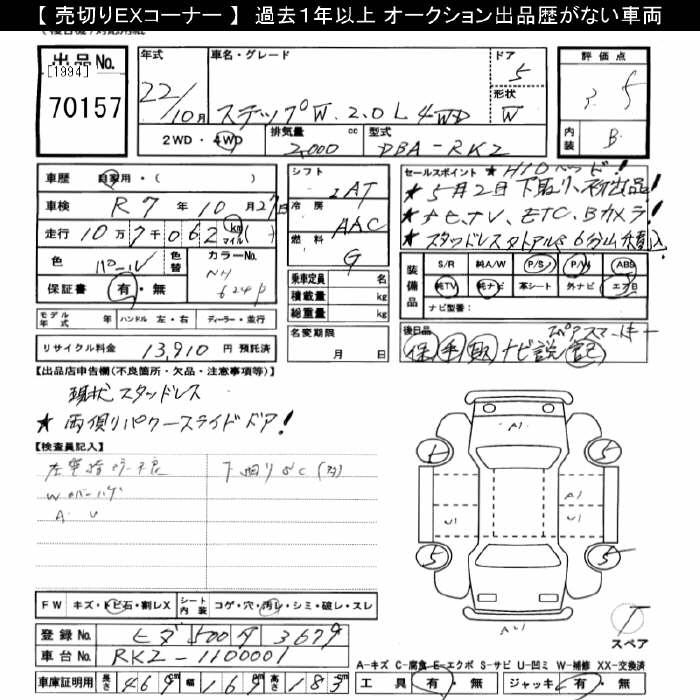 【 売切りEXコーナー 】 過去1年以上 オークション出品歴がない車両
出品No.
[1994]
70157
年式
22/10月
車名・グレード
ステップW. 2.0L 4WD
ドア
5
形状
W
評価点
3.5
内装
B
2WD ・ 4WD
排気量
2,000 cc
型式
DBA-RK2
車歴
自家用・(
車検
R7 年 10 月 27日
走行
10万7千062 km マイル
色
パール
色替
カラーNo.
NH
624P
保証書
有・無
モデル年式
年
ハンドル
左・右
ディーラー・並行
リサイクル料金
13,910 円 預託済
シフト
AT
冷房
AAC
燃料
G
乗車定員
名
積載量
kg
総重量
kg
名変期限
月 日
セールスポイント
★ HIDヘッド!
★ 5月2日下取り、初出品!
★ ナビ、TV、ETC、Bカメラ!
★ スタッドレス
6分山 積込
装備品
S/R
純A/W
P/S
P/W
ABS
純TV
純ナビ
革シート
外ナビ
エアB
ナビ型番:
後日品
スペアスマートキー
保 手 取 ナビ説 記
【出品店申告欄(不良箇所・欠品・注意事項等)】
現状スタッドレス
★ 両側パワースライドドア!
【検査員記入】
A . U
下廻りSC
FW
キズ・トビ石・割レX
シート内装
コゲ・穴・汚レ・シミ・破レ・スレ
登録No.
ヒダ 500 タ 3679
車台No.
RK2-1100001
車庫証明用
長さ
469cm
幅
169cm
高さ
183cm
A1
5
5
A1
U1
U1
5
5
T
スペア
A-キズ C-腐食 E-エクボ S-サビ U-凹ミ W-補修 XX-交換済
工具
有・無
ジャッキ
有・無